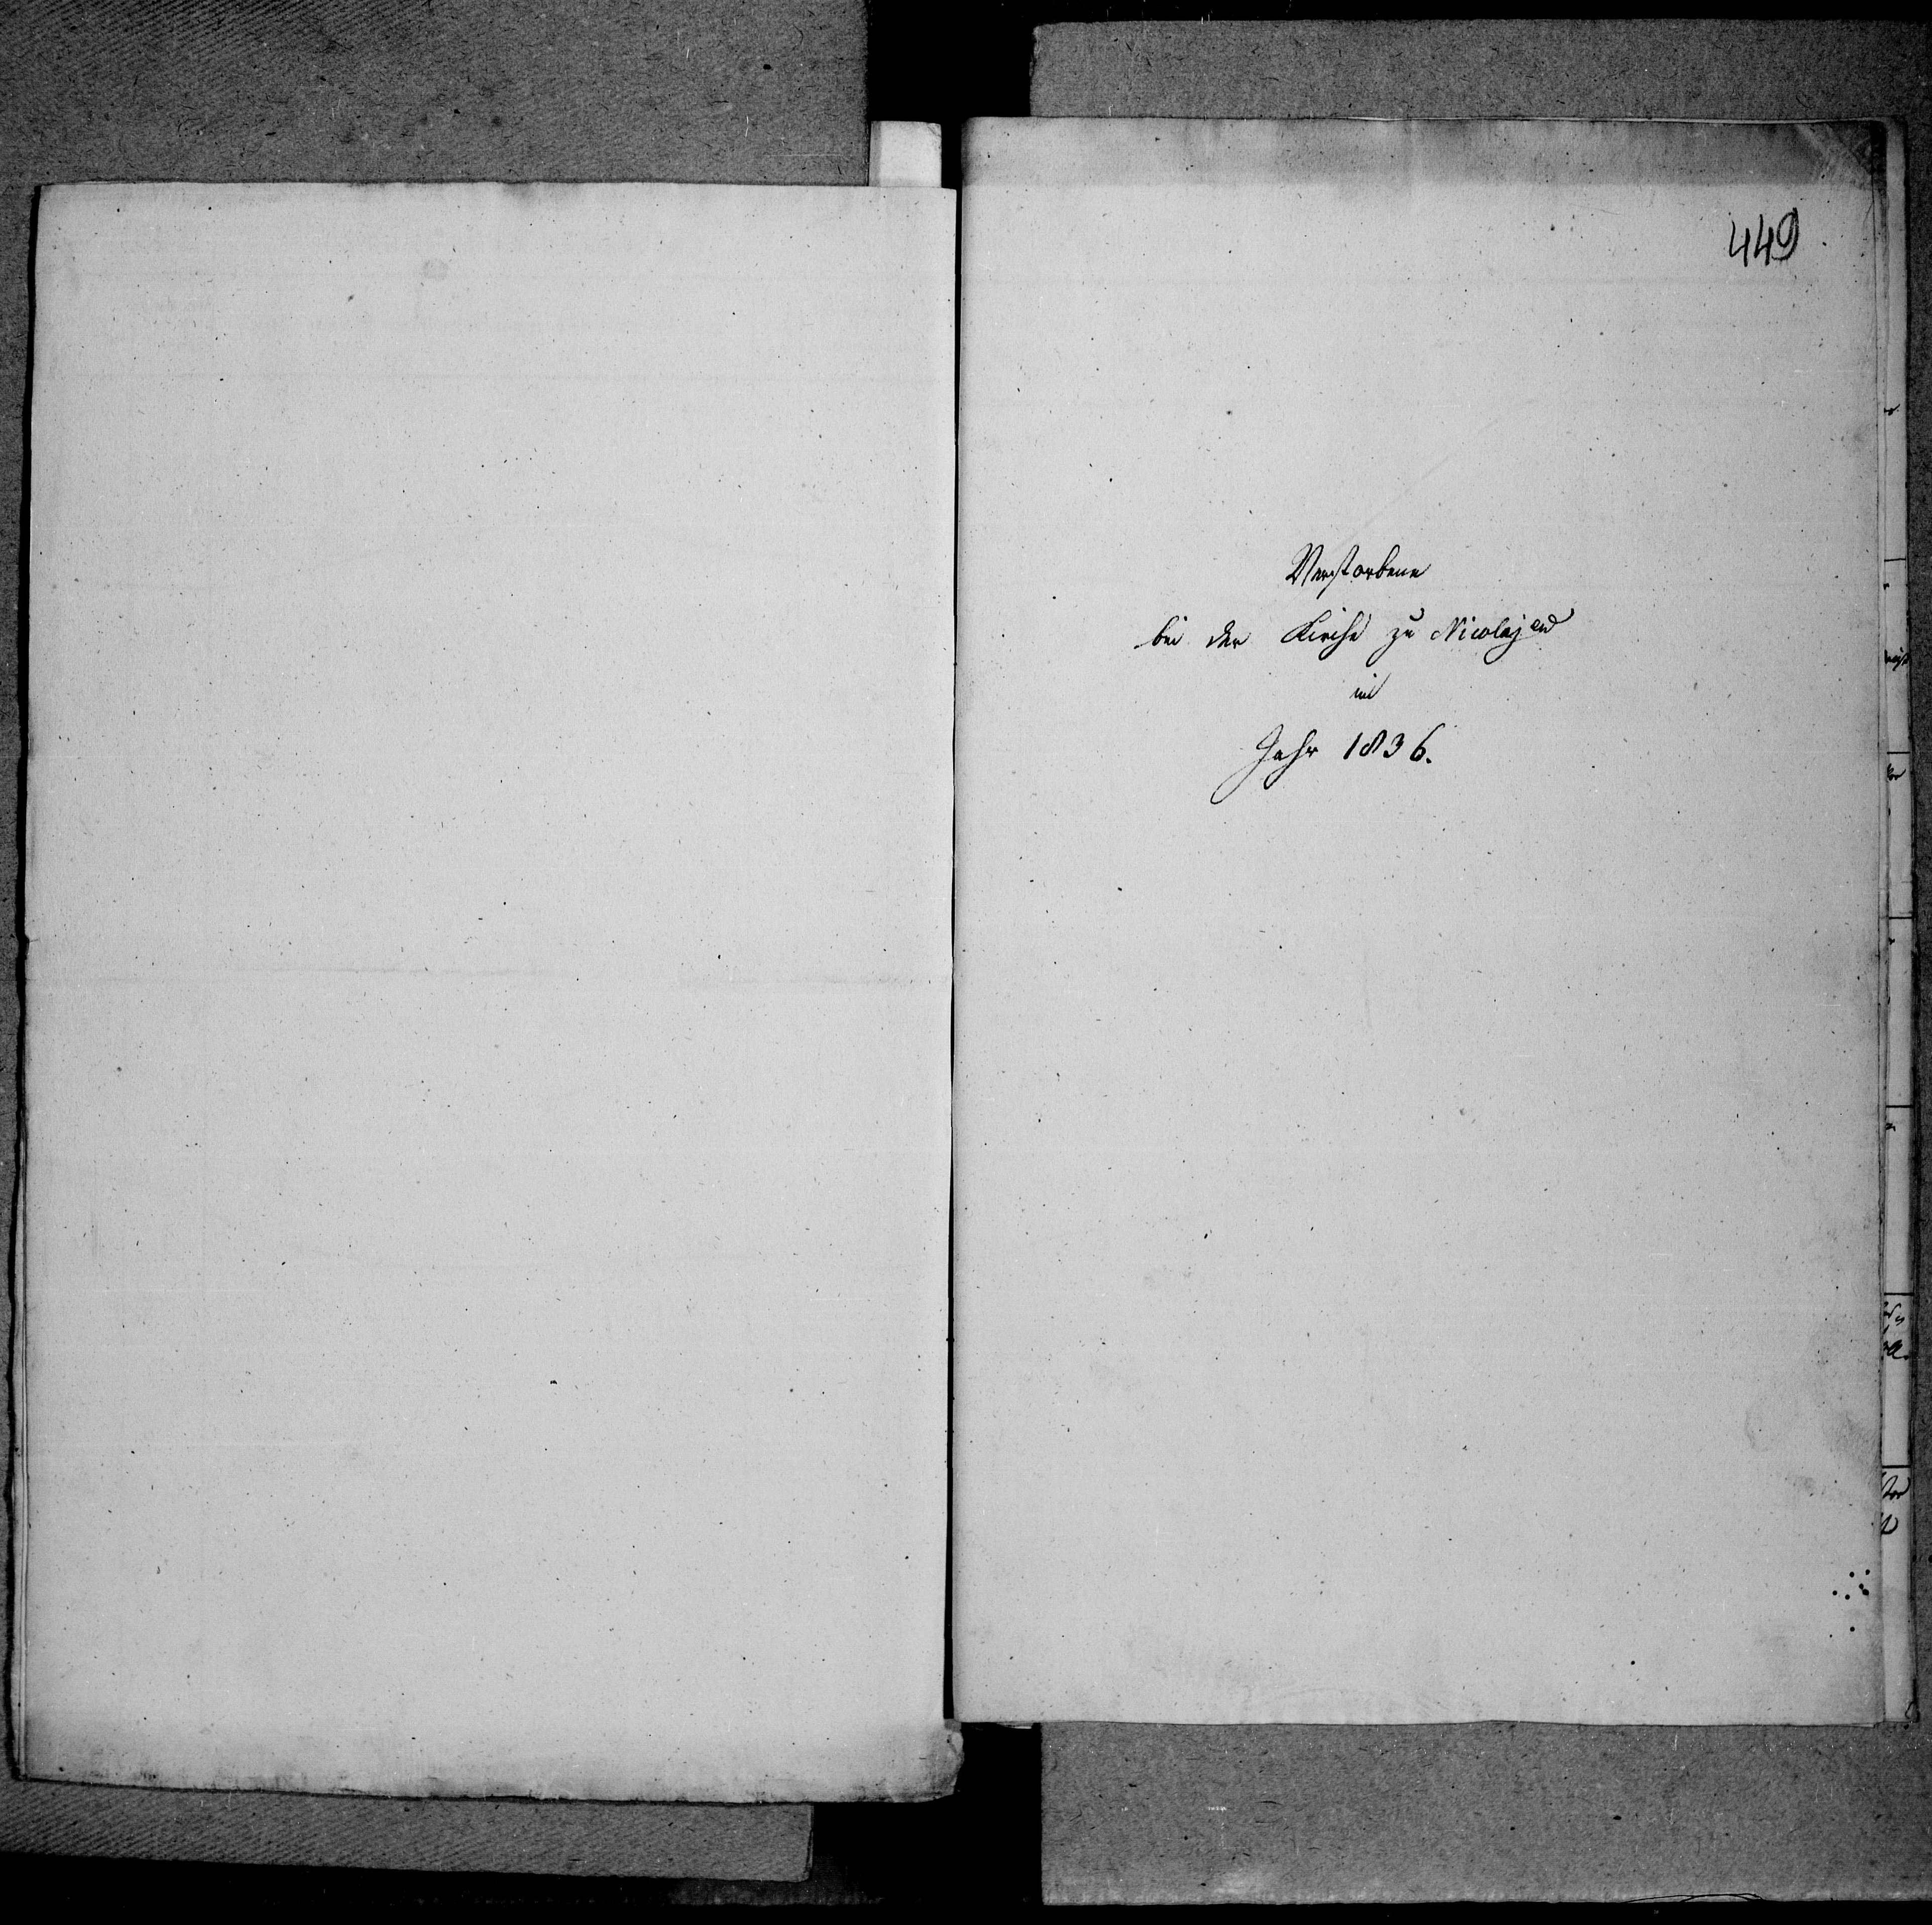 449
Verstorbene
bei der Kirche zu Nicolajew
im
Jahr 1836.